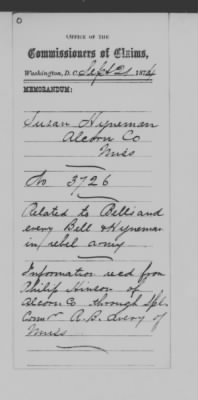 O
OFFICE OF THE
Commissioners of Claims,
Washington, D. C. Sept 21 1874
MEMORANDUM:
Susan Hyneman
Alcorn Co
Miss
No 3726
Related to Bells and
every Bell & Hyneman
in rebel army
Information recd from
Philip Hinson of
Alcorn Co through Spl.
Comr A. B. Avery of
Miss